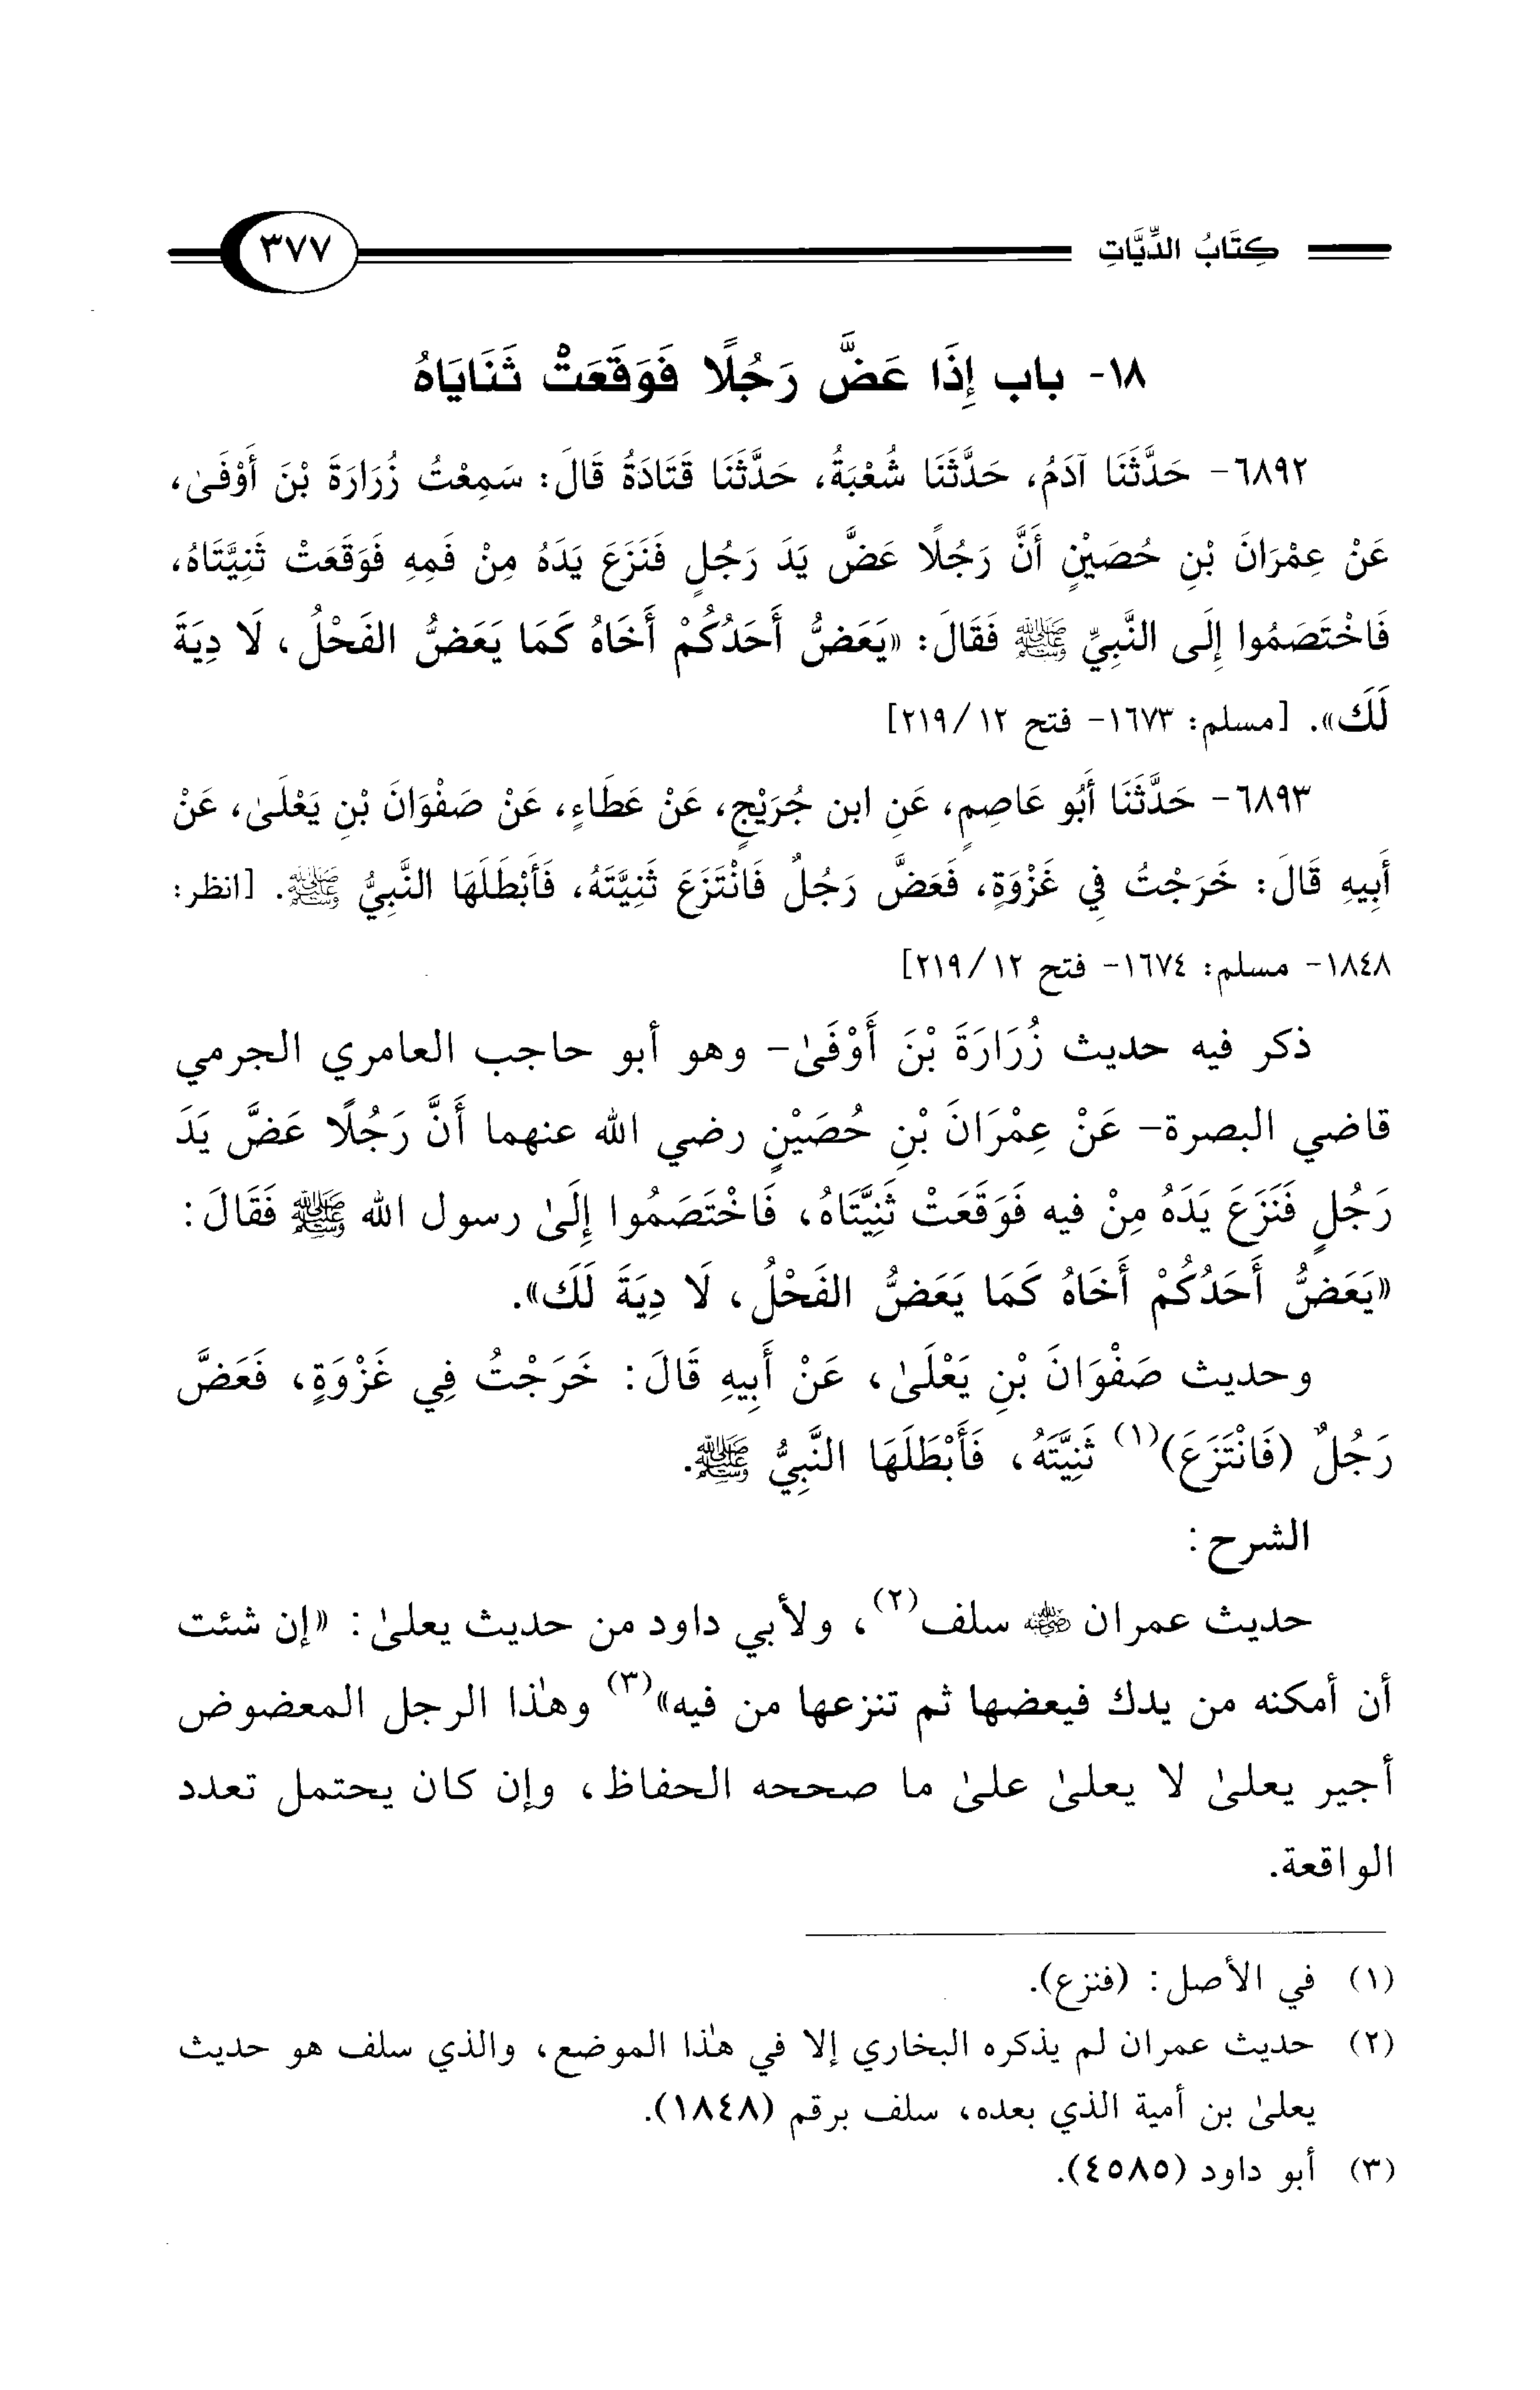 كِتَابُ الدِّيَّاتِ
٣٧٧
١٨- باب إِذَا عَضَّ رَجُلًا فَوَقَعَتْ ثَنَايَاهُ
٦٨٩٢- حَدَّثَنَا آدَمُ، حَدَّثَنَا شُعْبَةُ، حَدَّثَنَا قَتَادَةُ قَالَ: سَمِعْتُ زُرَارَةَ بْنَ أَوْفَىٰ،
عَنْ عِمْرَانَ بْنِ حُصَيْنٍ أَنَّ رَجُلًا عَضَّ يَدَ رَجُلٍ فَنَزَعَ يَدَهُ مِنْ فَمِهِ فَوَقَعَتْ ثَنِيَّتَاهُ،
فَاخْتَصَمُوا إِلَى النَّبِيِّ ﷺ فَقَالَ: «يَعَضُّ أَحَدُكُمْ أَخَاهُ كَمَا يَعَضُّ الفَحْلُ، لَا دِيَةَ
لَكَ». [مسلم: ١٦٧٣- فتح ١٢/ ٢١٩]
٦٨٩٣- حَدَّثَنَا أَبُو عَاصِمٍ، عَنِ ابن جُرَيْجٍ، عَنْ عَطَاءٍ، عَنْ صَفْوَانَ بْنِ يَعْلَىٰ، عَنْ
أَبِيهِ قَالَ: خَرَجْتُ فِي غَزْوَةٍ، فَعَضَّ رَجُلٌ فَانْتَزَعَ ثَنِيَّتَهُ، فَأَبْطَلَهَا النَّبِيُّ ﷺ. [انظر:
١٨٤٨- مسلم: ١٦٧٤- فتح ١٢/ ٢١٩]
ذكر فيه حديث زُرَارَةَ بْنَ أَوْفَىٰ- وهو أبو حاجب العامري الجرمي
قاضي البصرة- عَنْ عِمْرَانَ بْنِ حُصَيْنٍ رضي الله عنهما أَنَّ رَجُلًا عَضَّ يَدَ
رَجُلٍ فَنَزَعَ يَدَهُ مِنْ فيه فَوَقَعَتْ ثَنِيَّتَاهُ، فَاخْتَصَمُوا إِلَىٰ رسول الله ﷺ فَقَالَ:
«يَعَضُّ أَحَدُكُمْ أَخَاهُ كَمَا يَعَضُّ الفَحْلُ، لَا دِيَةَ لَكَ».
وحديث صَفْوَانَ بْنِ يَعْلَىٰ، عَنْ أَبِيهِ قَالَ: خَرَجْتُ فِي غَزْوَةٍ، فَعَضَّ
رَجُلٌ (فَانْتَزَعَ)(١) ثَنِيَّتَهُ، فَأَبْطَلَهَا النَّبِيُّ ﷺ.
الشرح:
حديث عمران رضي الله عنه سلف(٢)، ولأبي داود من حديث يعلىٰ: «إن شئت
أن أمكنه من يدك فيعضها ثم تنزعها من فيه»(٣) وهٰذا الرجل المعضوض
أجير يعلىٰ لا يعلىٰ علىٰ ما صححه الحفاظ، وإن كان يحتمل تعدد
الواقعة.
(١) في الأصل: (فنزع).
(٢) حديث عمران لم يذكره البخاري إلا في هٰذا الموضع، والذي سلف هو حديث
يعلىٰ بن أمية الذي بعده، سلف برقم (١٨٤٨).
(٣) أبو داود (٤٥٨٥).